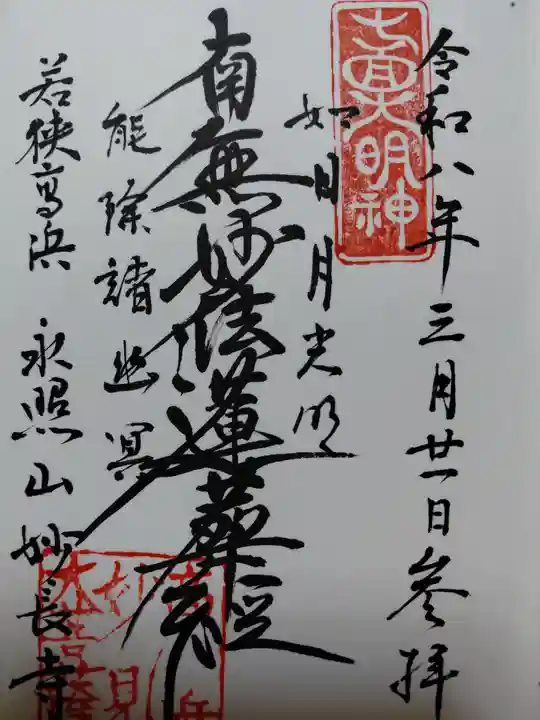 令和八年三月廿一日参拝
如日月光明
南無妙法蓮華経
能除諸幽冥
若狭高浜 永照山妙長寺
大明神
妙見